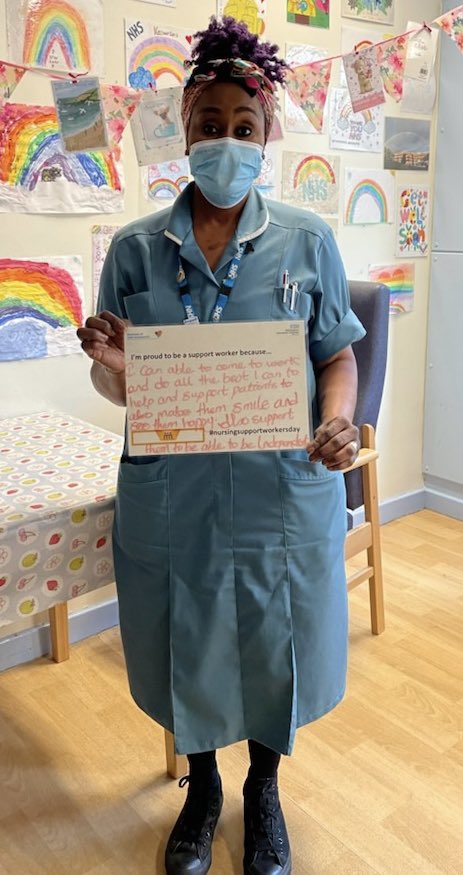 NHS
NHS
Get
Well
SOON
NHS
I'm proud to be a support worker because...
I can able to come to work
and do all the best I can to
help and support patients to
also makes them smile and
see them happy. Also support
#nursingsupportworkersday
them to be able to be Independent